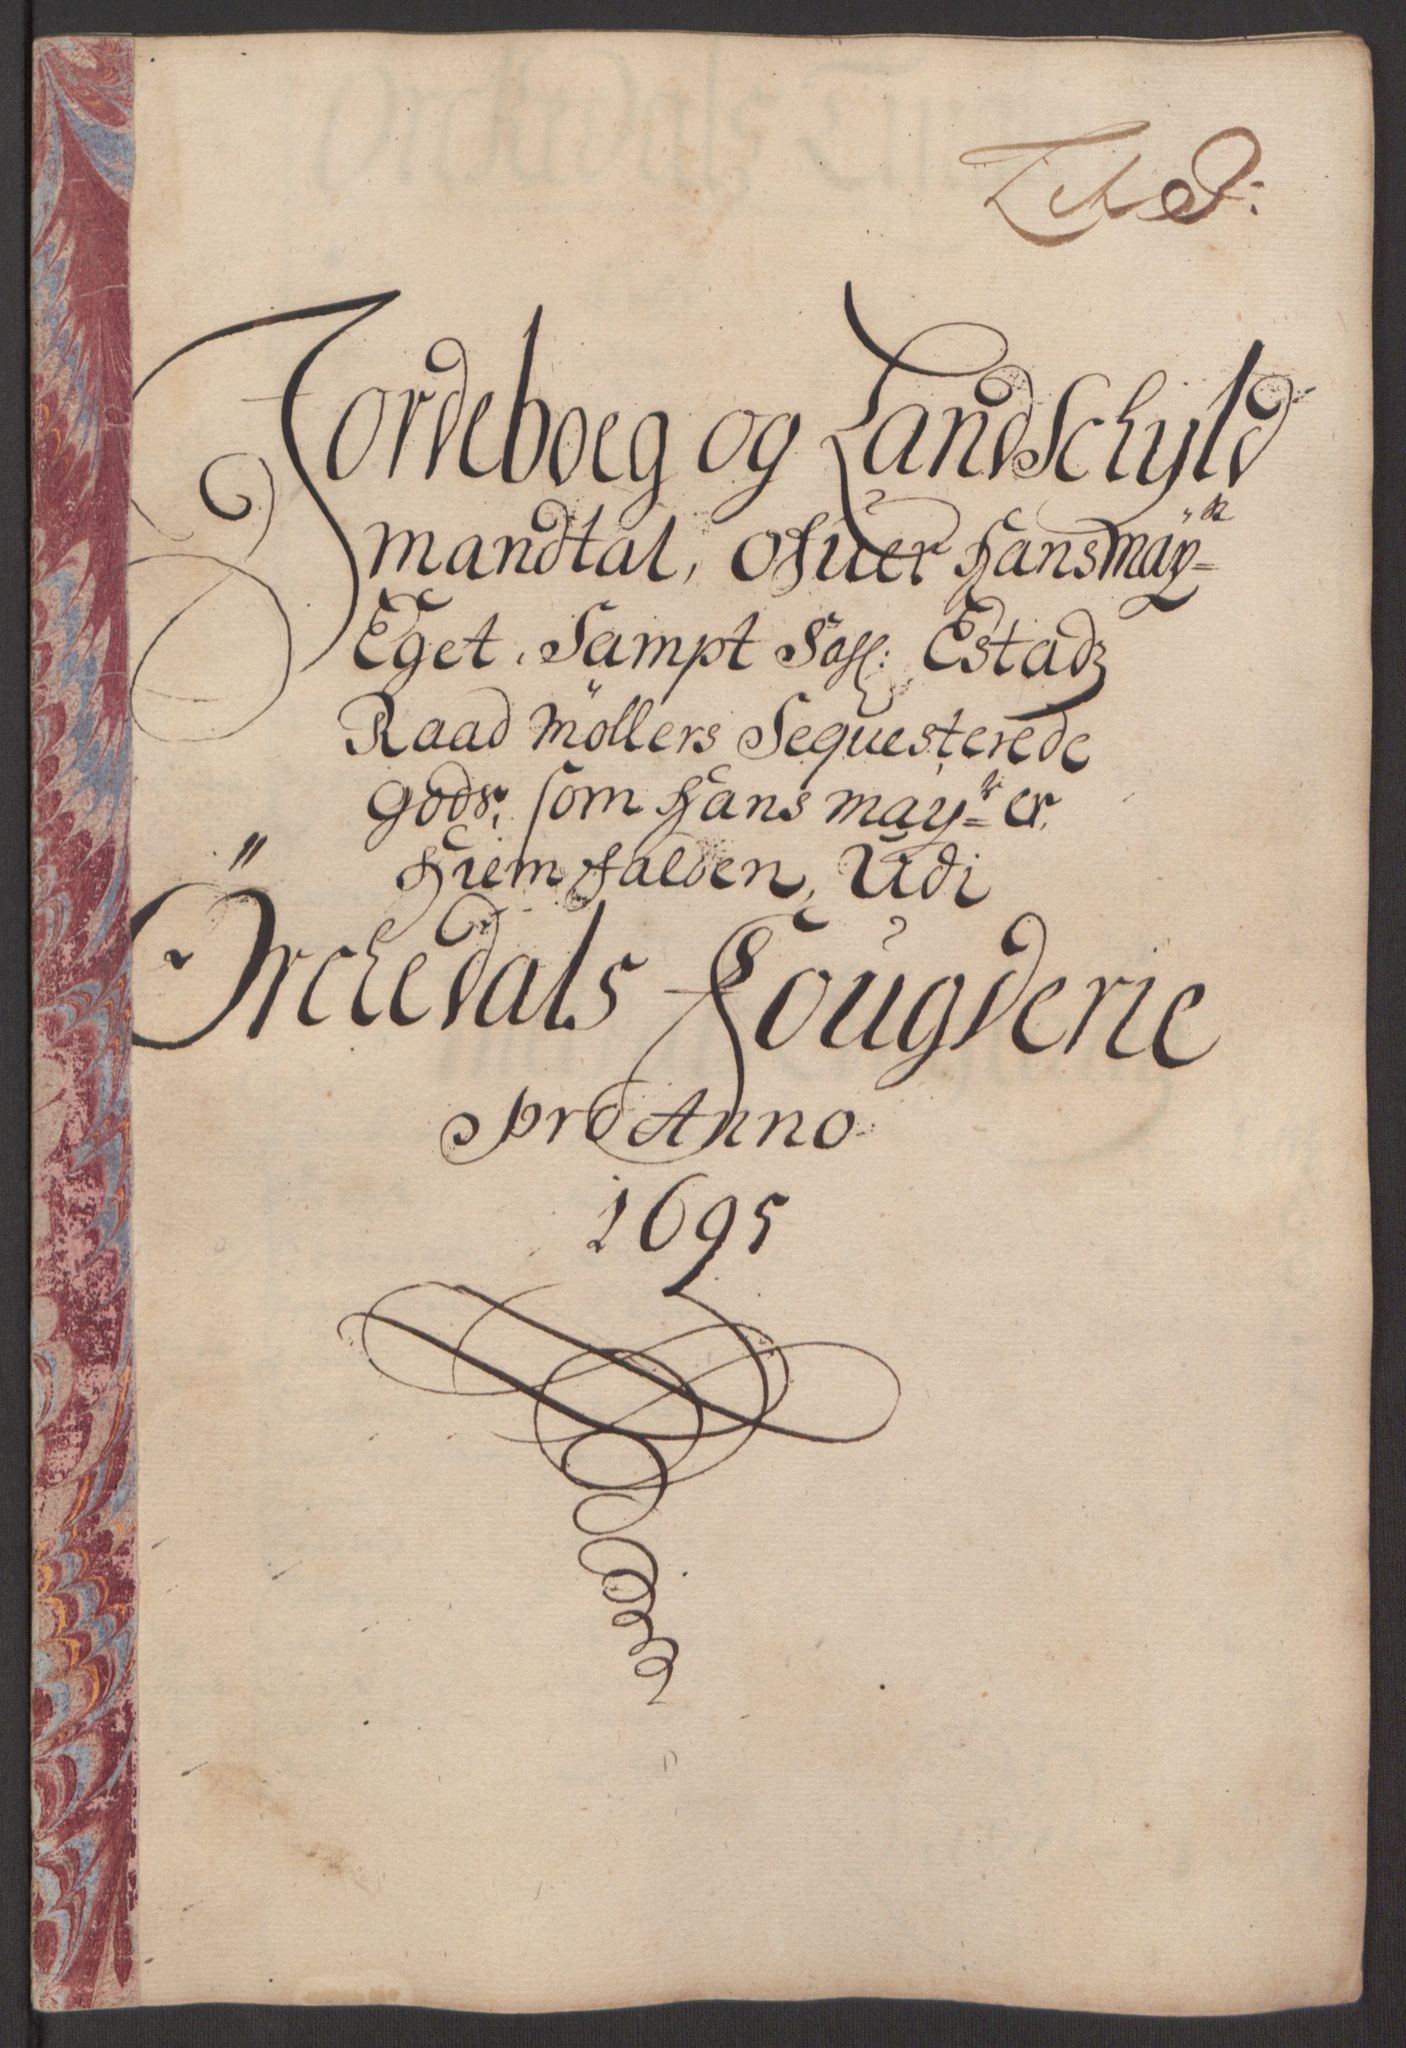 Jordeboeg og Landschyld
mandtal, ofuer hans may.
Eget, Sampt Sahl: Estadz
Raad Möllers Sequesterede
gods, som hans may. er
hiemfalden, Udi
Örchedals Fougderie
pro Anno
1695